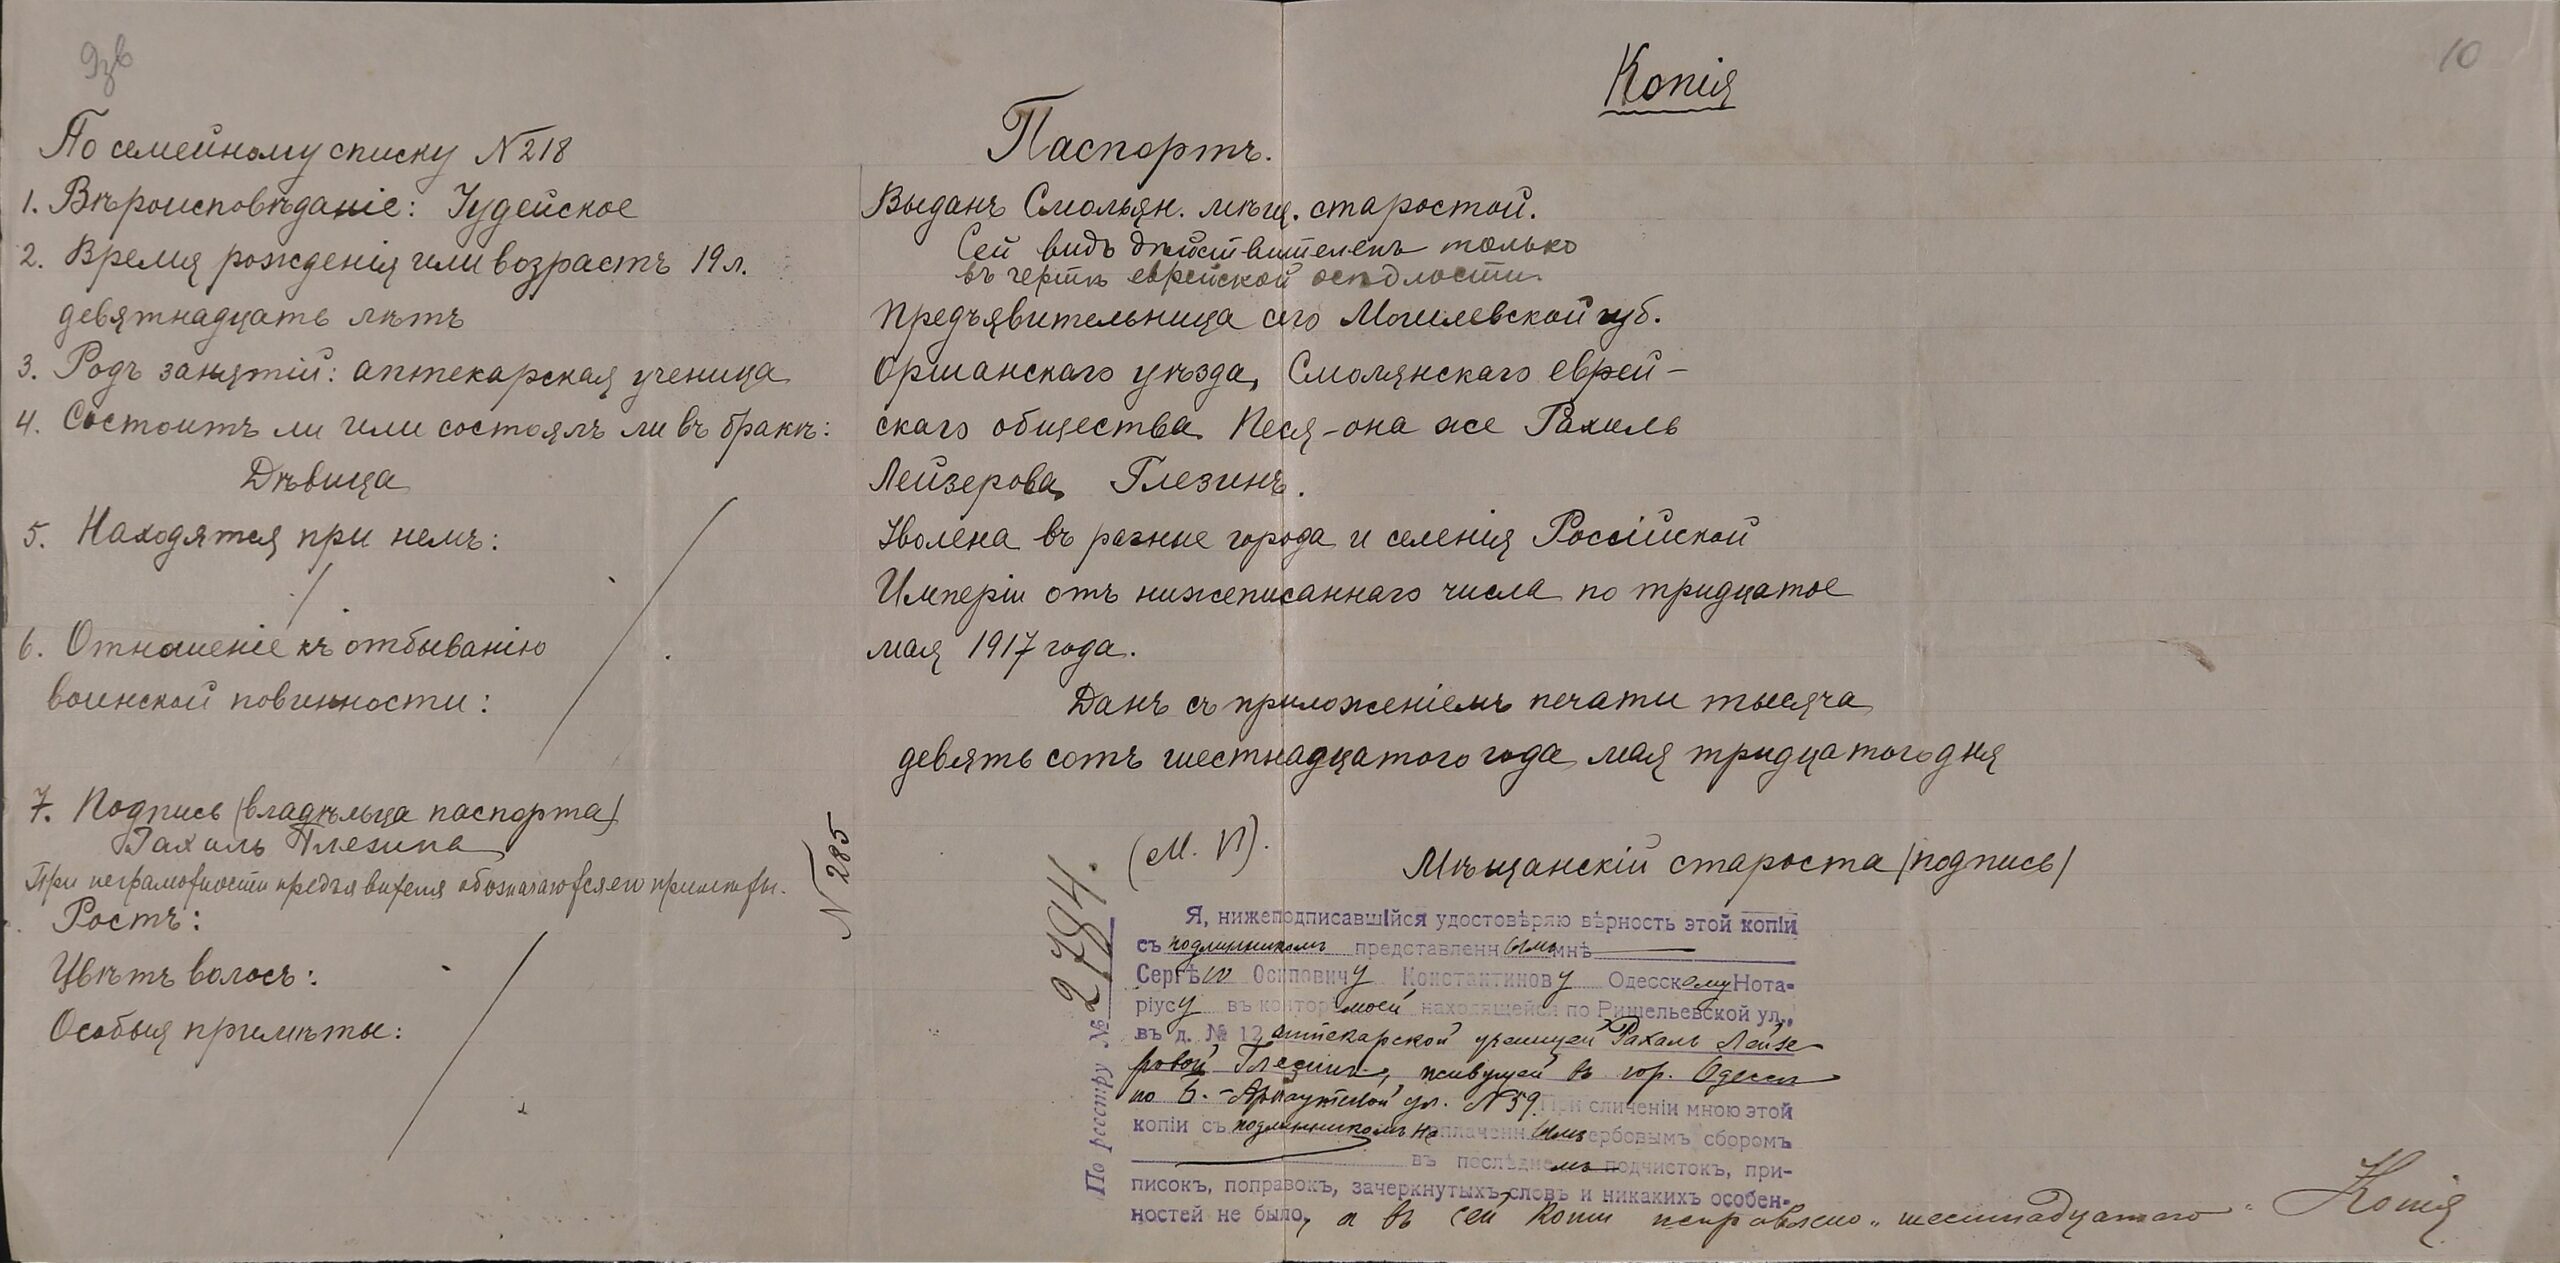 10
Копія
По семейному списку № 218
1. Вѣроисповѣданіе: Іудейское
2. Время рожденія или возрастъ 19 л.
девятнадцать лѣтъ
3. Родъ занятій: аптекарская ученица
4. Состоитъ ли или состоялъ ли въ бракѣ:
Дѣвица
5. Находятся при немъ:
6. Отношеніе къ отбыванію
воинской повинности:
7. Подпись (владѣльца паспорта)
Рахиль Глезина
При неграмотности предъявителя обозначаются его примѣты.
Ростъ:
Цвѣтъ волосъ:
Особыя примѣты:
№ 285
Паспортъ.
Выданъ Смольян. мѣщ. старостой.
Сей видъ дѣйствителенъ только
въ чертѣ еврейской осѣдлости.
Предъявительница сего Могилевской губ.
Оршанскаго уѣзда, Смолянскаго еврей-
скаго общества Песя-она же Рахиль
Лейзерова Глезинъ.
Уволена въ разные города и селенія Россійской
Имперіи отъ нижеписаннаго числа по тридцатое
мая 1917 года.
Данъ съ приложеніемъ печати тысяча
девятьсотъ шестнадцатого года мая тридцатого дня
(М. П).
Мѣщанскій староста (подпись)
По реестру № 2794.
Я, нижеподписавшійся удостовѣряю вѣрность этой копіи
съ подлинникомъ представленнымъ мнѣ
Сергѣю Осиповичу Константинову Одесскому Нота-
ріусу въ конторѣ моей находящейся по Ришельевской ул.,
въ д. № 12 аптекарской ученицей Рахиль Лейзе
ровой Глезинъ, живущей въ гор. Одессѣ
по Б.-Арнаутской ул. № 59. При сличеніи мною этой
копіи съ подлинникомъ не оплаченнымъ гербовымъ сборомъ
въ послѣднемъ подчистокъ, при-
писокъ, поправокъ, зачеркнутыхъ словъ и никакихъ особен-
ностей не было, а въ сей копіи исправлено „шестнадцатаго" Копія